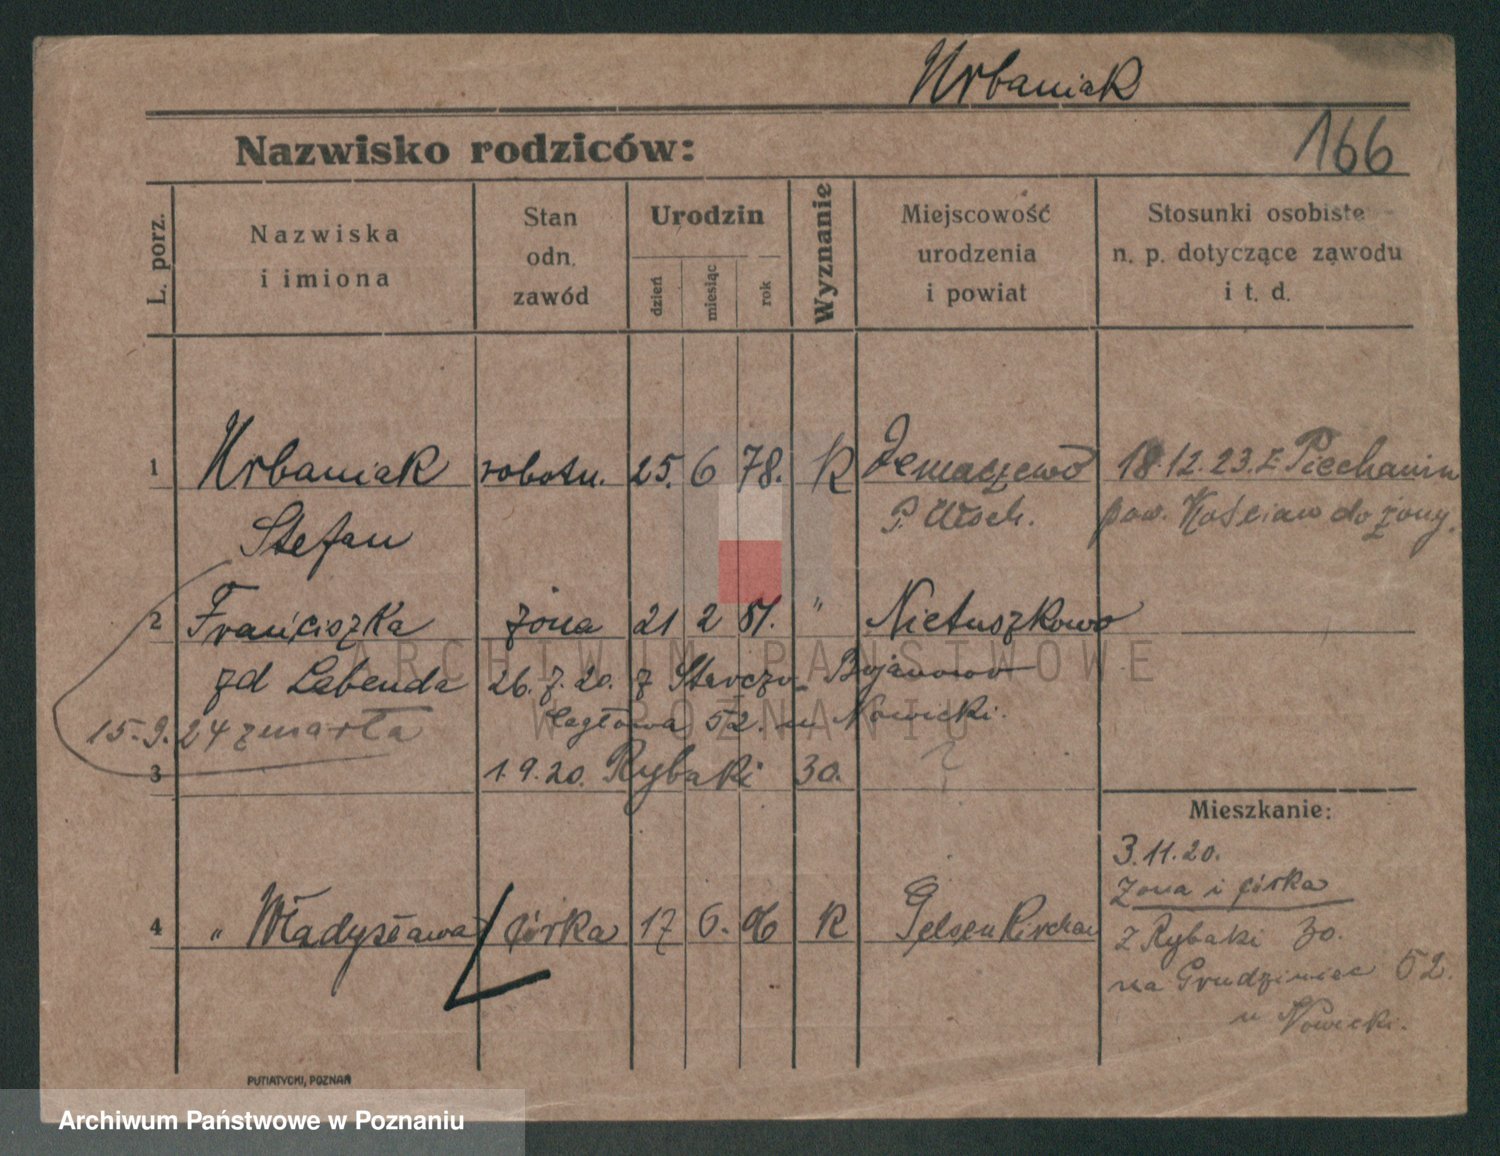 Urbaniak
166
Nazwisko rodziców:
L. porz.
Nazwiska
i imiona
Stan
odn.
zawód
Urodzin
dzień
miesiąc
rok
Wyznanie
Miejscowość
urodzenia
i powiat
Stosunki osobiste
n. p. dotyczące zawodu
i t. d.
1 Urbaniak robotn. 25. 6 78. K 18.12.23. z Piechanin
Stefan pow. Kościan do żony.
2 Franciszka żona 21 2 81. " Nietuszkowo
zd Labenda 26.7.20. z Bojanowo
15.9.24 zmarła 52. u Nowicki.
3 1.9.20. Rybaki 30.
Mieszkanie:
3.11.20.
Żona i córka
4 " Władysława córka 17 6. 06 K Gelsenkirchen
z Rybaki 30.
na Grudzieniec 52.
u Nowicki.
PUTIATYCKI, POZNAŃ
ARCHIWUM PAŃSTWOWE
W POZNANIU
Archiwum Państwowe w Poznaniu